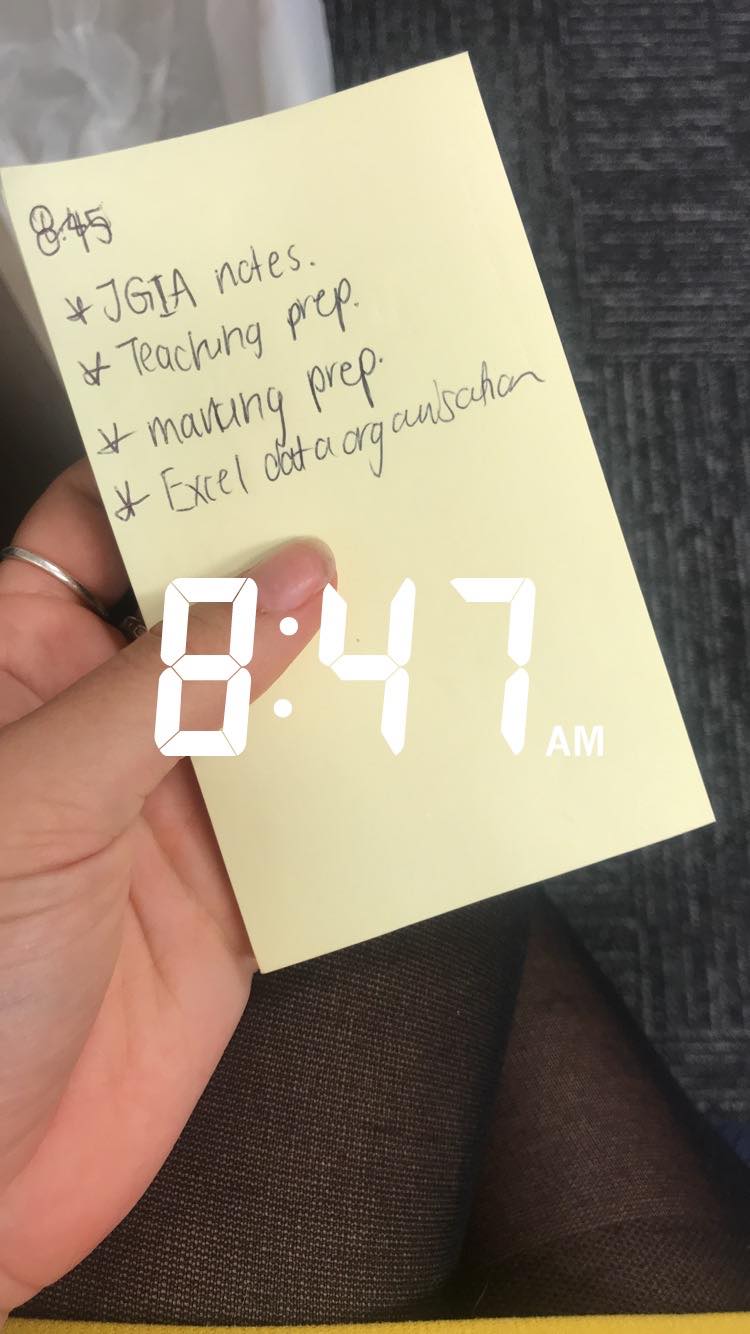 8:45
* JGIA notes.
* Teaching prep.
* marking prep.
* Excel data organisation
8:47 AM